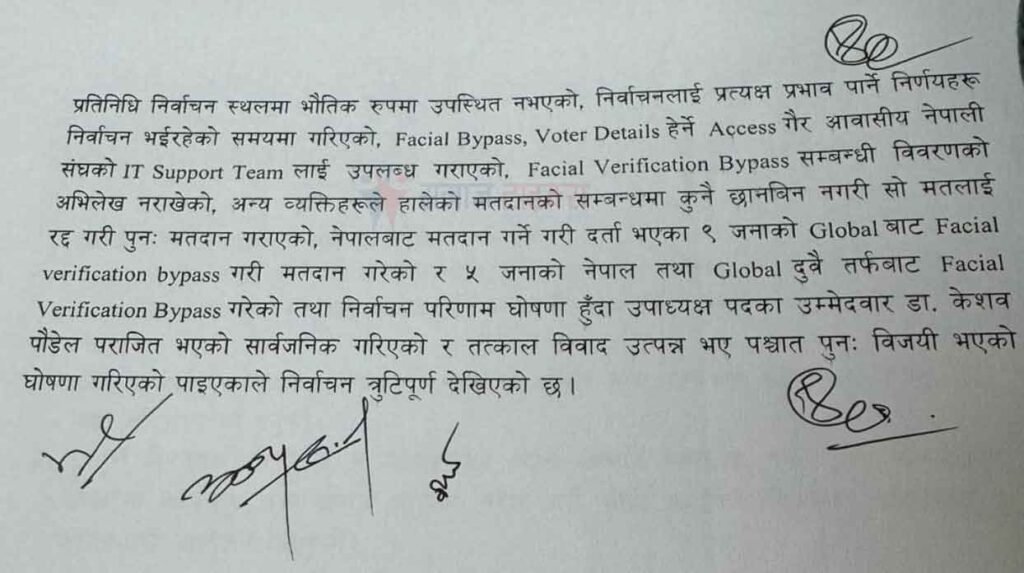 प्रतिनिधि निर्वाचन स्थलमा भौतिक रुपमा उपस्थित नभएको, निर्वाचनलाई प्रत्यक्ष प्रभाव पार्ने निर्णयहरू
निर्वाचन भईरहेको समयमा गरिएको, Facial Bypass, Voter Details हेर्ने Access गैर आवासीय नेपाली
संघको IT Support Team लाई उपलब्ध गराएको, Facial Verification Bypass सम्बन्धी विवरणको
अभिलेख नराखेको, अन्य व्यक्तिहरूले हालेको मतदानको सम्बन्धमा कुनै छानबिन नगरी सो मतलाई
रद्द गरी पुनः मतदान गराएको, नेपालबाट मतदान गर्ने गरी दर्ता भएका ९ जनाको Global बाट Facial
verification bypass गरी मतदान गरेको र ५ जनाको नेपाल तथा Global दुवै तर्फबाट Facial
Verification Bypass गरेको तथा निर्वाचन परिणाम घोषणा हुँदा उपाध्यक्ष पदका उम्मेदवार डा. केशव
पौडेल पराजित भएको सार्वजनिक गरिएको र तत्काल विवाद उत्पन्न भए पश्चात पुनः विजयी भएको
घोषणा गरिएको पाइएकाले निर्वाचन त्रुटिपूर्ण देखिएको छ।